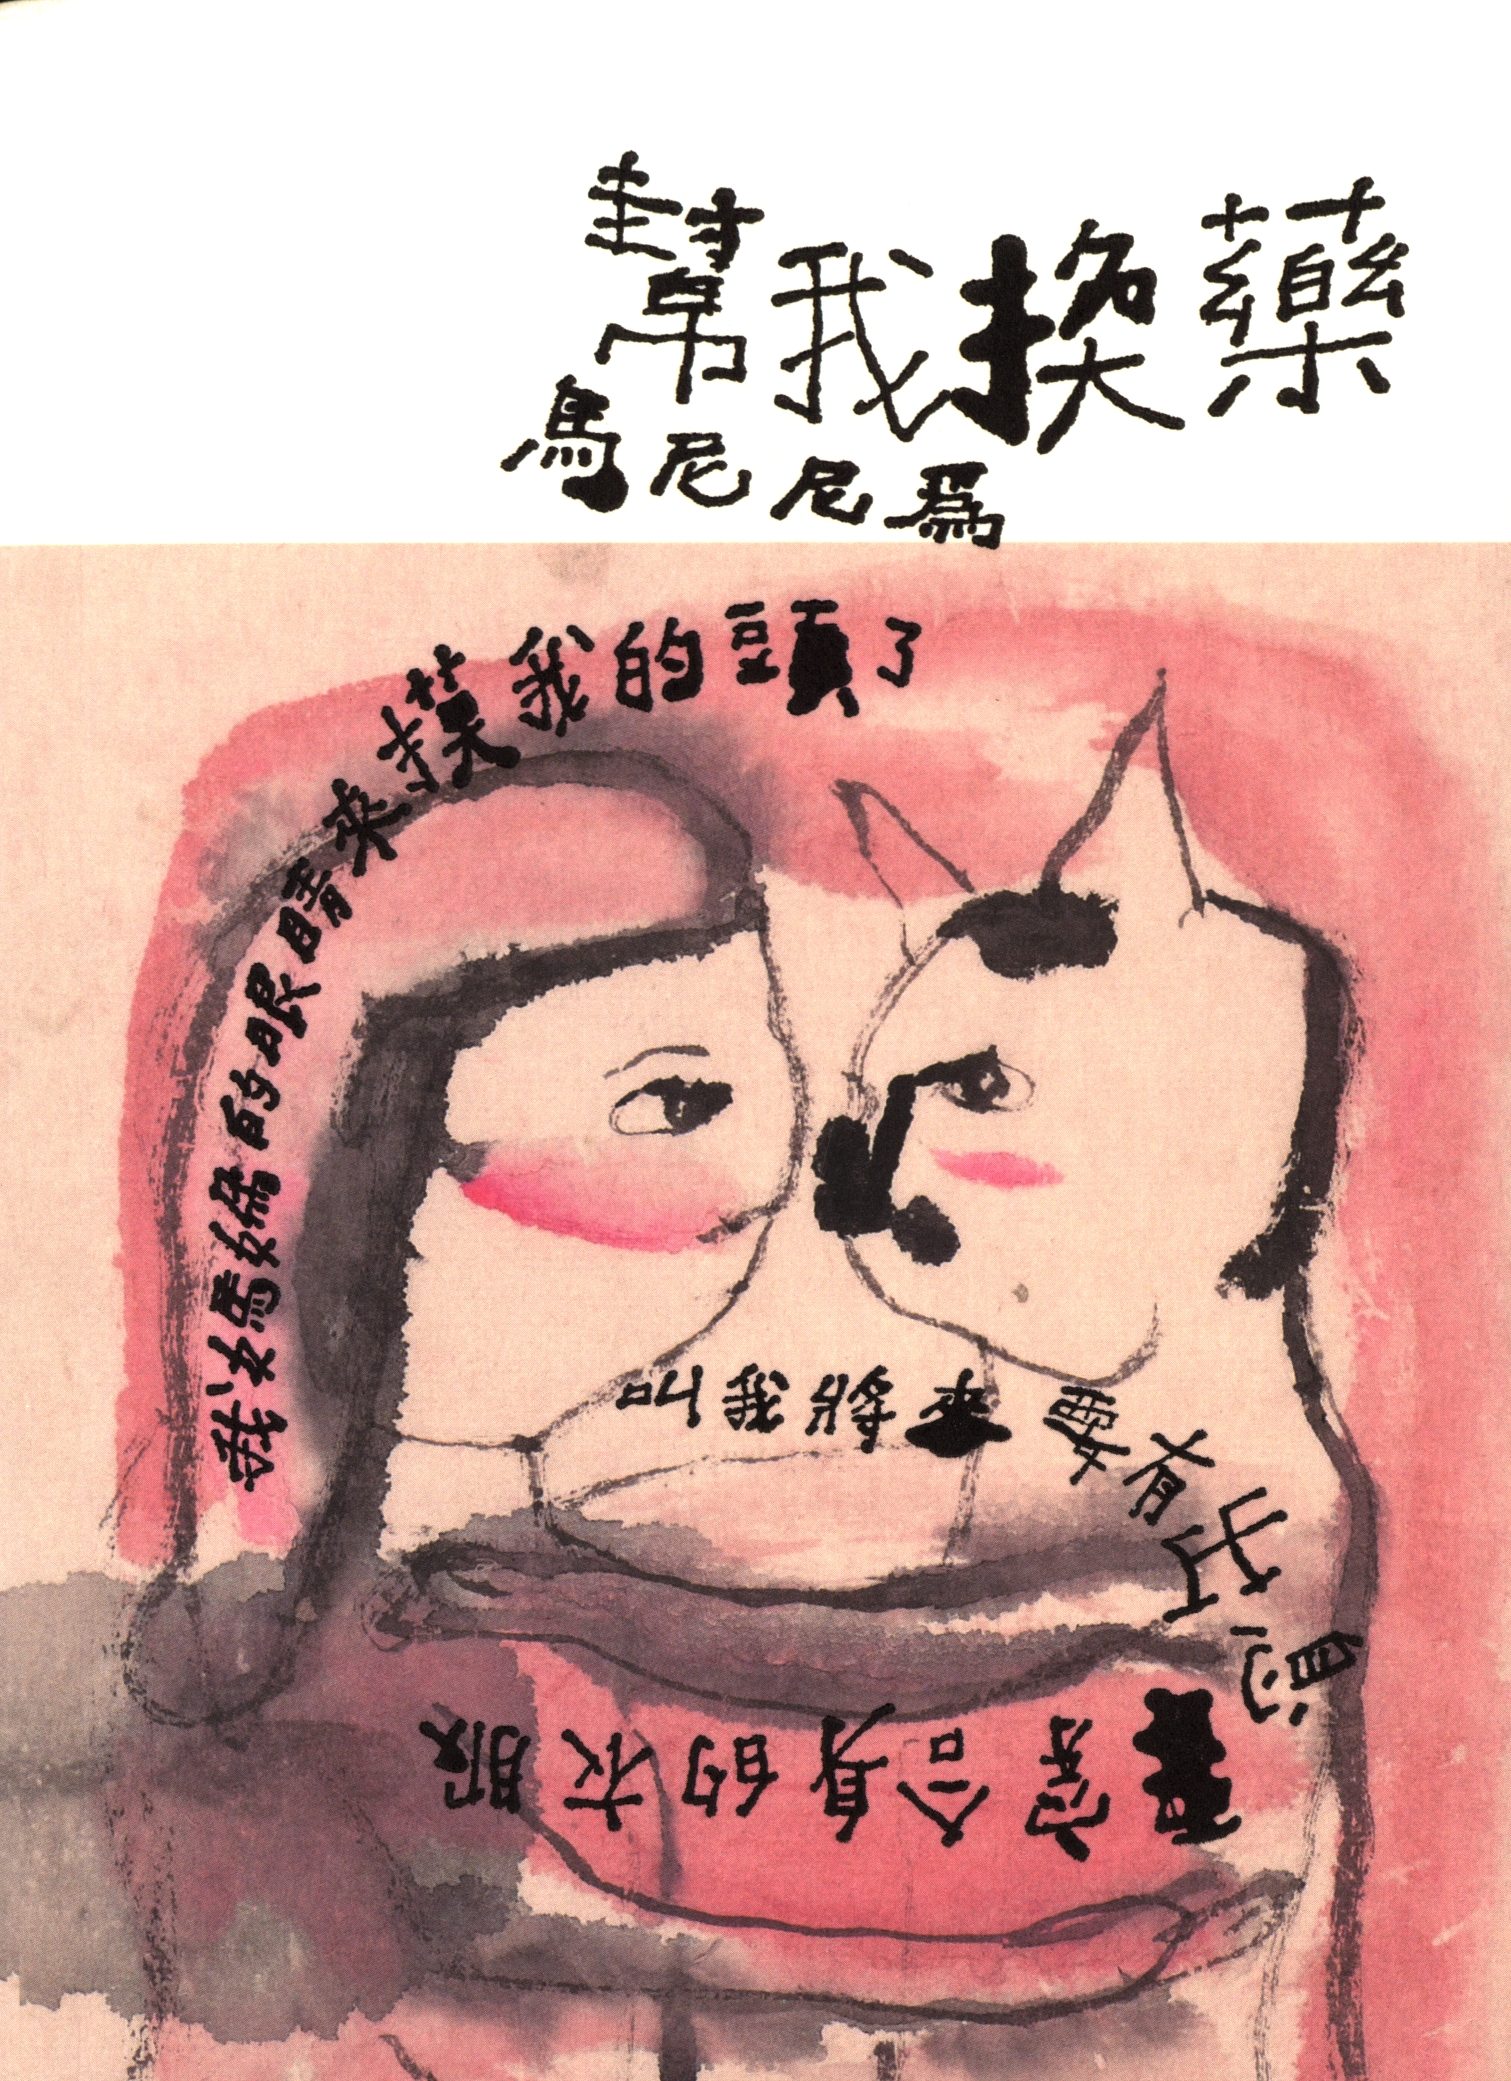 幫我換藥
馬尼尼爲
我媽媽的眼睛來摸我的頭了
叫我將來要有出息
穿合身的衣服